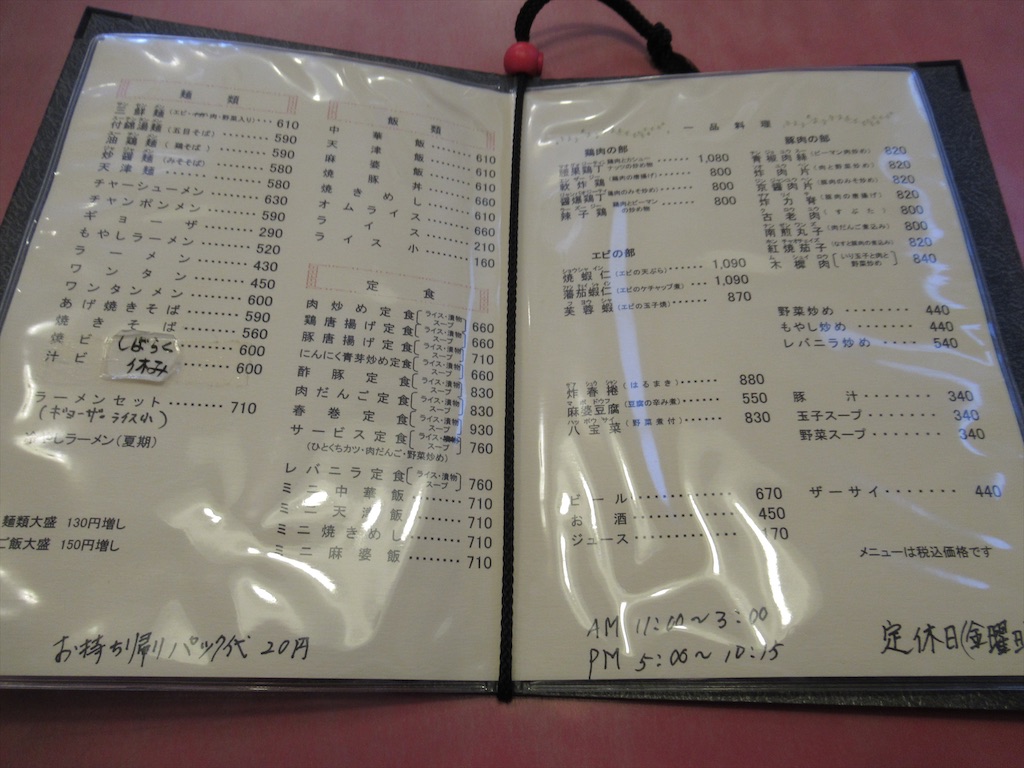 麺類
三鮮麺(エビ・肉・野菜入り)‥‥610
什錦湯麺(五目そば)‥‥590
油鶏麺(鶏そば)‥‥590
炒醤麺(みそそば)‥‥580
天津麺‥‥580
チャーシューメン‥‥630
チャンポンメン‥‥590
ギョーザ‥‥290
もやしラーメン‥‥520
ラーメン‥‥430
ワンタン‥‥450
ワンタンメン‥‥600
あげ焼きそば‥‥590
焼きそば‥‥560
焼ビ‥‥600
汁ビ
しばらく
休み
ラーメンセット‥‥710
(ギョーザ、ライス小)
やしラーメン(夏期)
麺類大盛 130円増し
ご飯大盛 150円増し
お持ち帰りパック代 20円
飯類
中華飯‥‥610
天津飯‥‥610
麻婆飯‥‥610
焼豚丼‥‥660
焼きめし‥‥610
オムライス‥‥660
ライス‥‥210
ライス小‥‥160
定食
肉炒め定食[ライス・漬物 スープ]660
鶏唐揚げ定食[ライス・漬物 スープ]660
豚唐揚げ定食[ライス・漬物 スープ]710
にんにく青芽炒め定食[ライス・漬物 スープ]660
酢豚定食[ライス・漬物 スープ]830
肉だんご定食[ライス・漬物 スープ]830
春巻定食[ライス・漬物 スープ]930
サービス定食[ライス・漬物 スープ]760
(ひとくちカツ・肉だんご・野菜炒め)
レバニラ定食[ライス・漬物 スープ]760
ミニ中華飯‥‥710
ミニ天津飯‥‥710
ミニ焼きめし‥‥710
ミニ麻婆飯‥‥710
一品料理
鶏肉の部
鶏肉とカシューナッツの炒め物‥‥1,080
軟炸鶏(鶏肉の唐揚げ)‥‥800
醤爆鶏丁(鶏肉のみそ炒め)‥‥800
辣子鶏(鶏肉とピーマンの炒め物)‥‥800
エビの部
焼蝦仁(エビの天ぷら)‥‥1,090
蕃茄蝦仁(エビのケチャップ煮)‥‥1,090
芙蓉蝦(エビの玉子焼)‥‥870
炸春捲(はるまき)‥‥880
麻婆豆腐(豆腐の辛み煮)‥‥550
八宝菜(野菜煮付)‥‥830
ビール‥‥670
お酒‥‥450
ジュース‥‥170
AM 11:00〜3:00
PM 5:00〜10:15
豚肉の部
青椒肉絲(ピーマン肉炒め)820
炸肉片(肉と野菜炒め)820
京醤肉片(豚肉のみそ炒め)820
炸力脊(豚肉の唐揚げ)820
古老肉(すぶた)800
南煎丸子(肉だんご煮込み)800
紅焼茄子(なすと豚肉の煮込み)820
木樨肉[いり玉子と肉と野菜炒め]840
野菜炒め‥‥440
もやし炒め‥‥440
レバニラ炒め‥‥540
豚汁‥‥340
玉子スープ‥‥340
野菜スープ‥‥340
ザーサイ‥‥440
メニューは税込価格です
定休日(金曜日